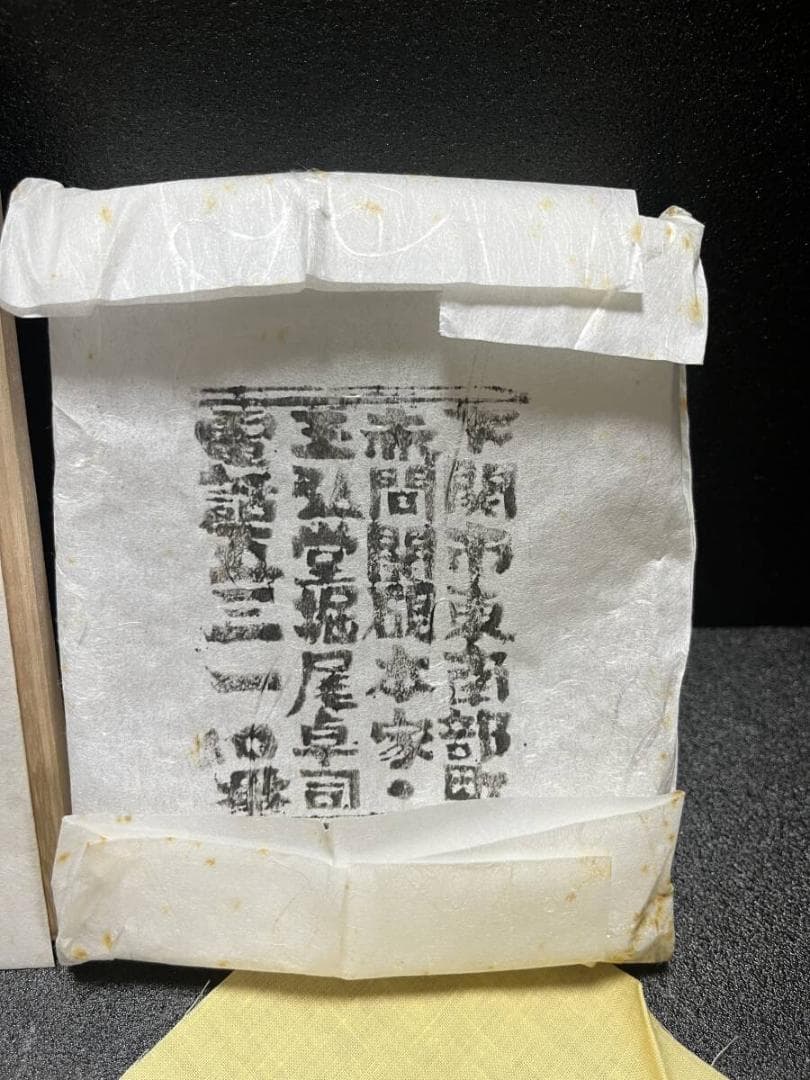 下関市東南部町
赤間関硯本家・
玉弘堂堀尾卓司
電話五三一〇番